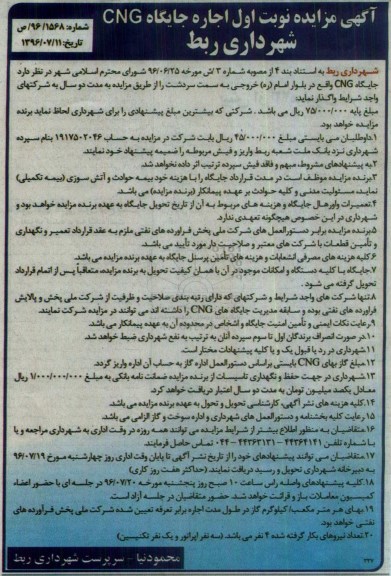 آگهی مزایده نوبت اول اجاره جایگاه CNG
شهرداری ربط
شماره: ۹۶/۱۵۶۸/ص
تاریخ: ۱۳۹۶/۰۷/۱۱
شهرداری ربط به استناد بند ۴ از مصوبه شماره ۳/ش مورخه ۹۶/۰۶/۲۵ شورای محترم اسلامی شهر در نظر دارد
جایگاه CNG واقع در بلوار امام (ره) خروجی به سمت سردشت را از طریق مزایده به مدت دو سال به شرکتهای
واجد شرایط واگذار نماید:
مبلغ پایه ۷۵/۰۰۰/۰۰۰ ریال می باشد. شرکتی که بیشترین مبلغ پیشنهادی را برای شهرداری لحاظ نماید برنده
مزایده خواهد بود
۱.داوطلبان می بایستی مبلغ ۴۵/۰۰۰/۰۰۰ ریال بابت شرکت در مزایده به حساب ۱۹۱۷۵۰۲۰۴۶ بنام سپرده
شهرداری نزد بانک ملت شعبه ربط واریز و فیش مربوطه را ضمیمه پیشنهاد خود نمایند.
۲.به پیشنهادهای مشروط، مبهم و فاقد فیش سپرده ترتیب اثر داده نخواهد شد.
۳.برنده مزایده موظف است در مدت قرارداد جایگاه را با هزینه خود بیمه حوادث و آتش سوزی (بیمه تکمیلی)
نماید، مسئولیت مدنی و کلیه حوادث بر عهده پیمانکار (برنده مزایده) می باشد.
۴.تعمیرات واورهال جایگاه و هزینه های مربوط به آن از تاریخ تحویل جایگاه به عهده برنده مزایده خواهد بود و
شهرداری در این خصوص هیچگونه تعهدی ندارد.
۵.برنده مزایده برابر دستورالعمل های شرکت ملی پخش فراورده های نفتی ملزم به عقد قرارداد تعمیر و نگهداری
و تأمین قطعات با شرکت های معتبر و صلاحیت دار مورد تأیید می باشد.
۶.کلیه هزینه های مصرفی انشعابات و هزینه های تأمین پرسنل جایگاه به عهده برنده مزایده می باشد.
۷.جایگاه با کلیه دستگاه و امکانات موجود در آن با همان کیفیت تحویل به برنده مزایده، متعاقباً پس از اتمام قرارداد
تحویل گرفته می شود.
۸.تنها شرکت های واجد شرایط و شرکتهای که دارای رتبه بندی صلاحیت و ظرفیت از شرکت ملی پخش و پالایش
فراورده های نفتی بوده و سابقه مدیریت جایگاه های CNG را داشته اند می توانند در مزایده شرکت نمایند.
۹.رعایت نکات ایمنی و تأمین امنیت جایگاه و اشخاص در محدوده آن به عهده پیمانکار می باشد.
۱۰.در صورت انصراف برندگان اول تا سوم سپرده آنان به ترتیب به نفع شهرداری ضبط خواهد شد.
۱۱.شهرداری در رد یا قبول یک و یا کلیه پیشنهادات مختار است.
۱۲.مبلغ گاز بهای CNG بایستی براساس دستورالعمل اداره گاز به حساب آن اداره واریز گردد.
۱۳.شهرداری در جهت حفظ و نگهداری تاسیسات از برنده مزایده ضمانت نامه بانکی به مبلغ ۱/۰۰۰/۰۰۰/۰۰۰ ریال
معادل یکصد میلیون تومان به مدت دو سال اعتبار دریافت خواهد کرد.
۱۴.کلیه هزینه های نشر آگهی، کارشناسی تحویل و تحول به عهده برنده مزایده می باشد.
۱۵.رعایت کلیه بخشنامه و دستورالعمل های شهرداری و اداره سوخت و گاز الزامی می باشد.
۱۶.متقاضیان به منظور اطلاع بیشتر از شرایط مزایده می توانند همه روزه در وقت اداری به شهرداری مراجعه و یا
با شماره تلفن ۴۴۳۶۴۱۴۱ - ۴۴۳۶۳۱۳۱-۰۴۴ تماس حاصل فرمایند.
۱۷.متقاضیان می توانند پیشنهادهای خود را از تاریخ نشر آگهی تا پایان وقت اداری روز چهارشنبه مورخ ۹۶/۰۷/۱۹
به دبیرخانه شهرداری تحویل و رسید دریافت نمایند. (حداکثر هفت روز کاری)
۱۸.کلیه پیشنهادهای واصله راس ساعت ۱۰ صبح روز پنجشنبه مورخه ۹۶/۰۷/۲۰ در جلسه ای با حضور اعضاء
کمیسیون معاملات باز و قرائت خواهد شد. حضور متقاضیان در جلسه آزاد است.
۱۹.بهای هر متر مکعب/کیلوگرم گاز در طول مدت اجاره برابر تعرفه تعیین شده شرکت ملی پخش فرآورده های
نفتی خواهد بود.
۲۰.تعداد نیروهای بکار گرفته شده ۴ نفر می باشد. (سه نفر اپراتور و یک نفر تکنیسین)
محمودنیا - سرپرست شهرداری ربط